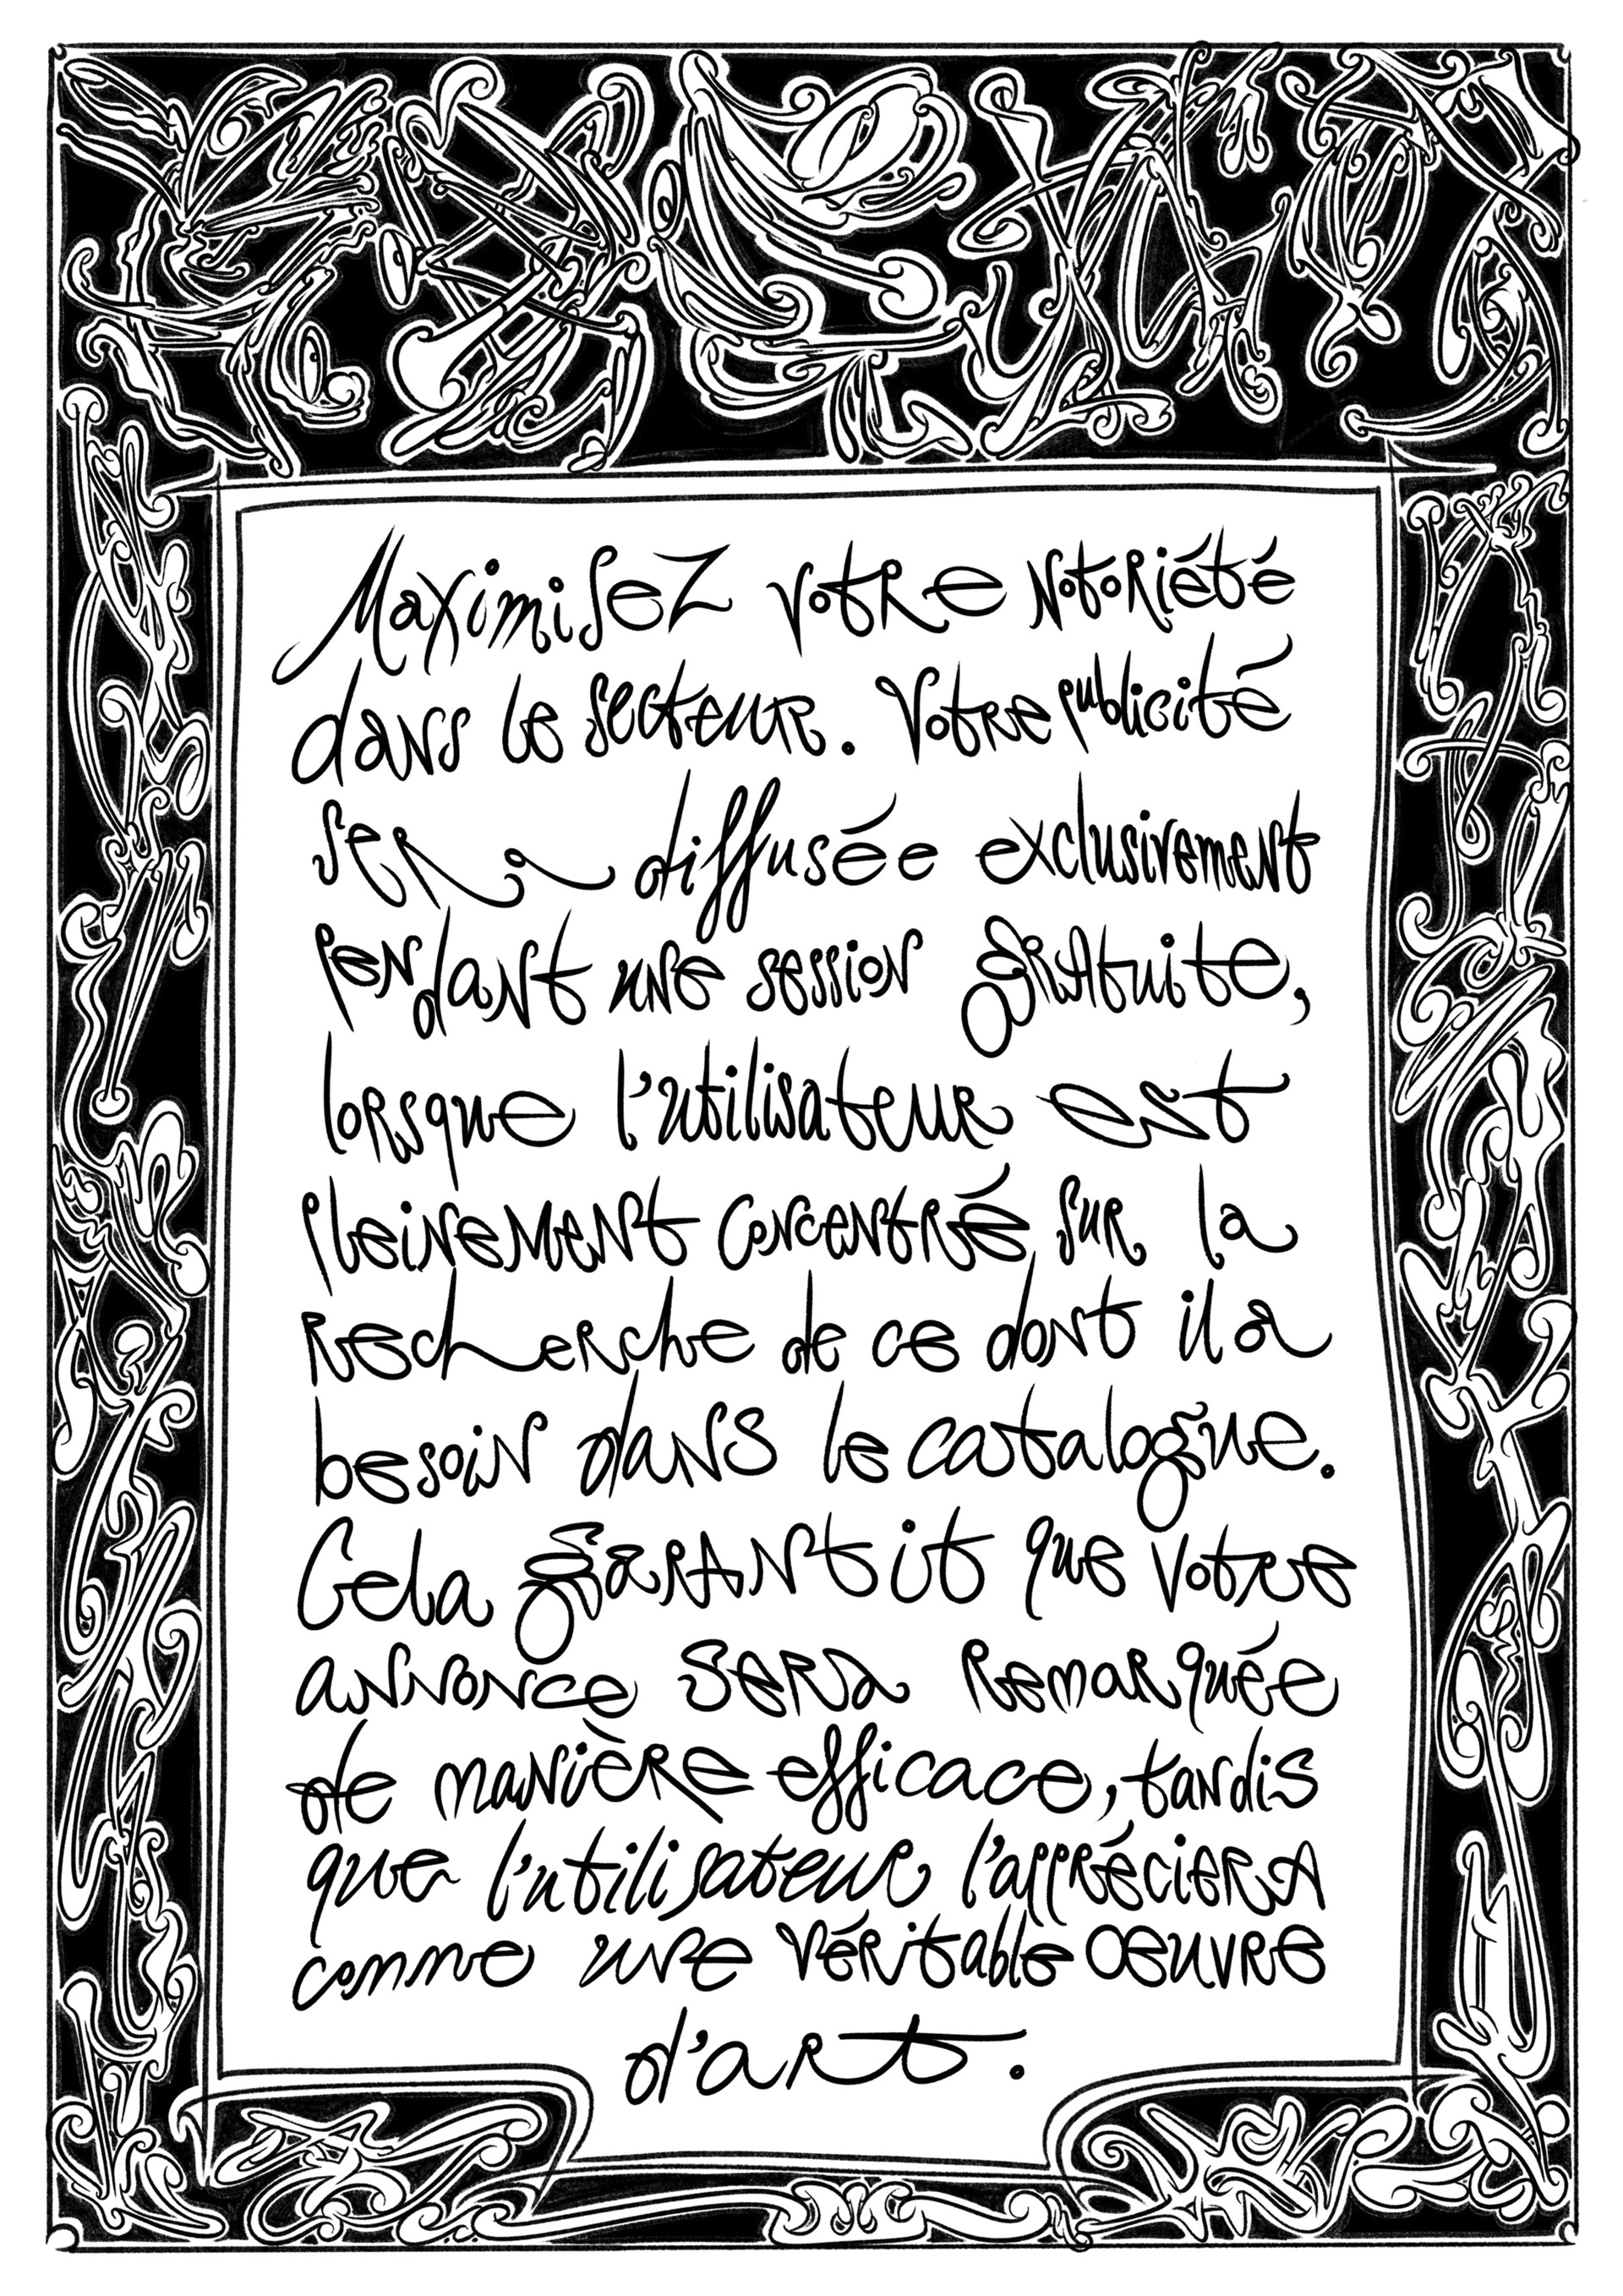 Maximisez votre notoriété
dans le secteur. Votre publicité
sera diffusée exclusivement
pendant une session gratuite,
lorsque l'utilisateur est
pleinement concentré sur la
recherche de ce dont il a
besoin dans le catalogue.
Cela garantit que votre
annonce sera remarquée
de manière efficace, tandis
que l'utilisateur l'appréciera
comme une véritable oeuvre
d'art.